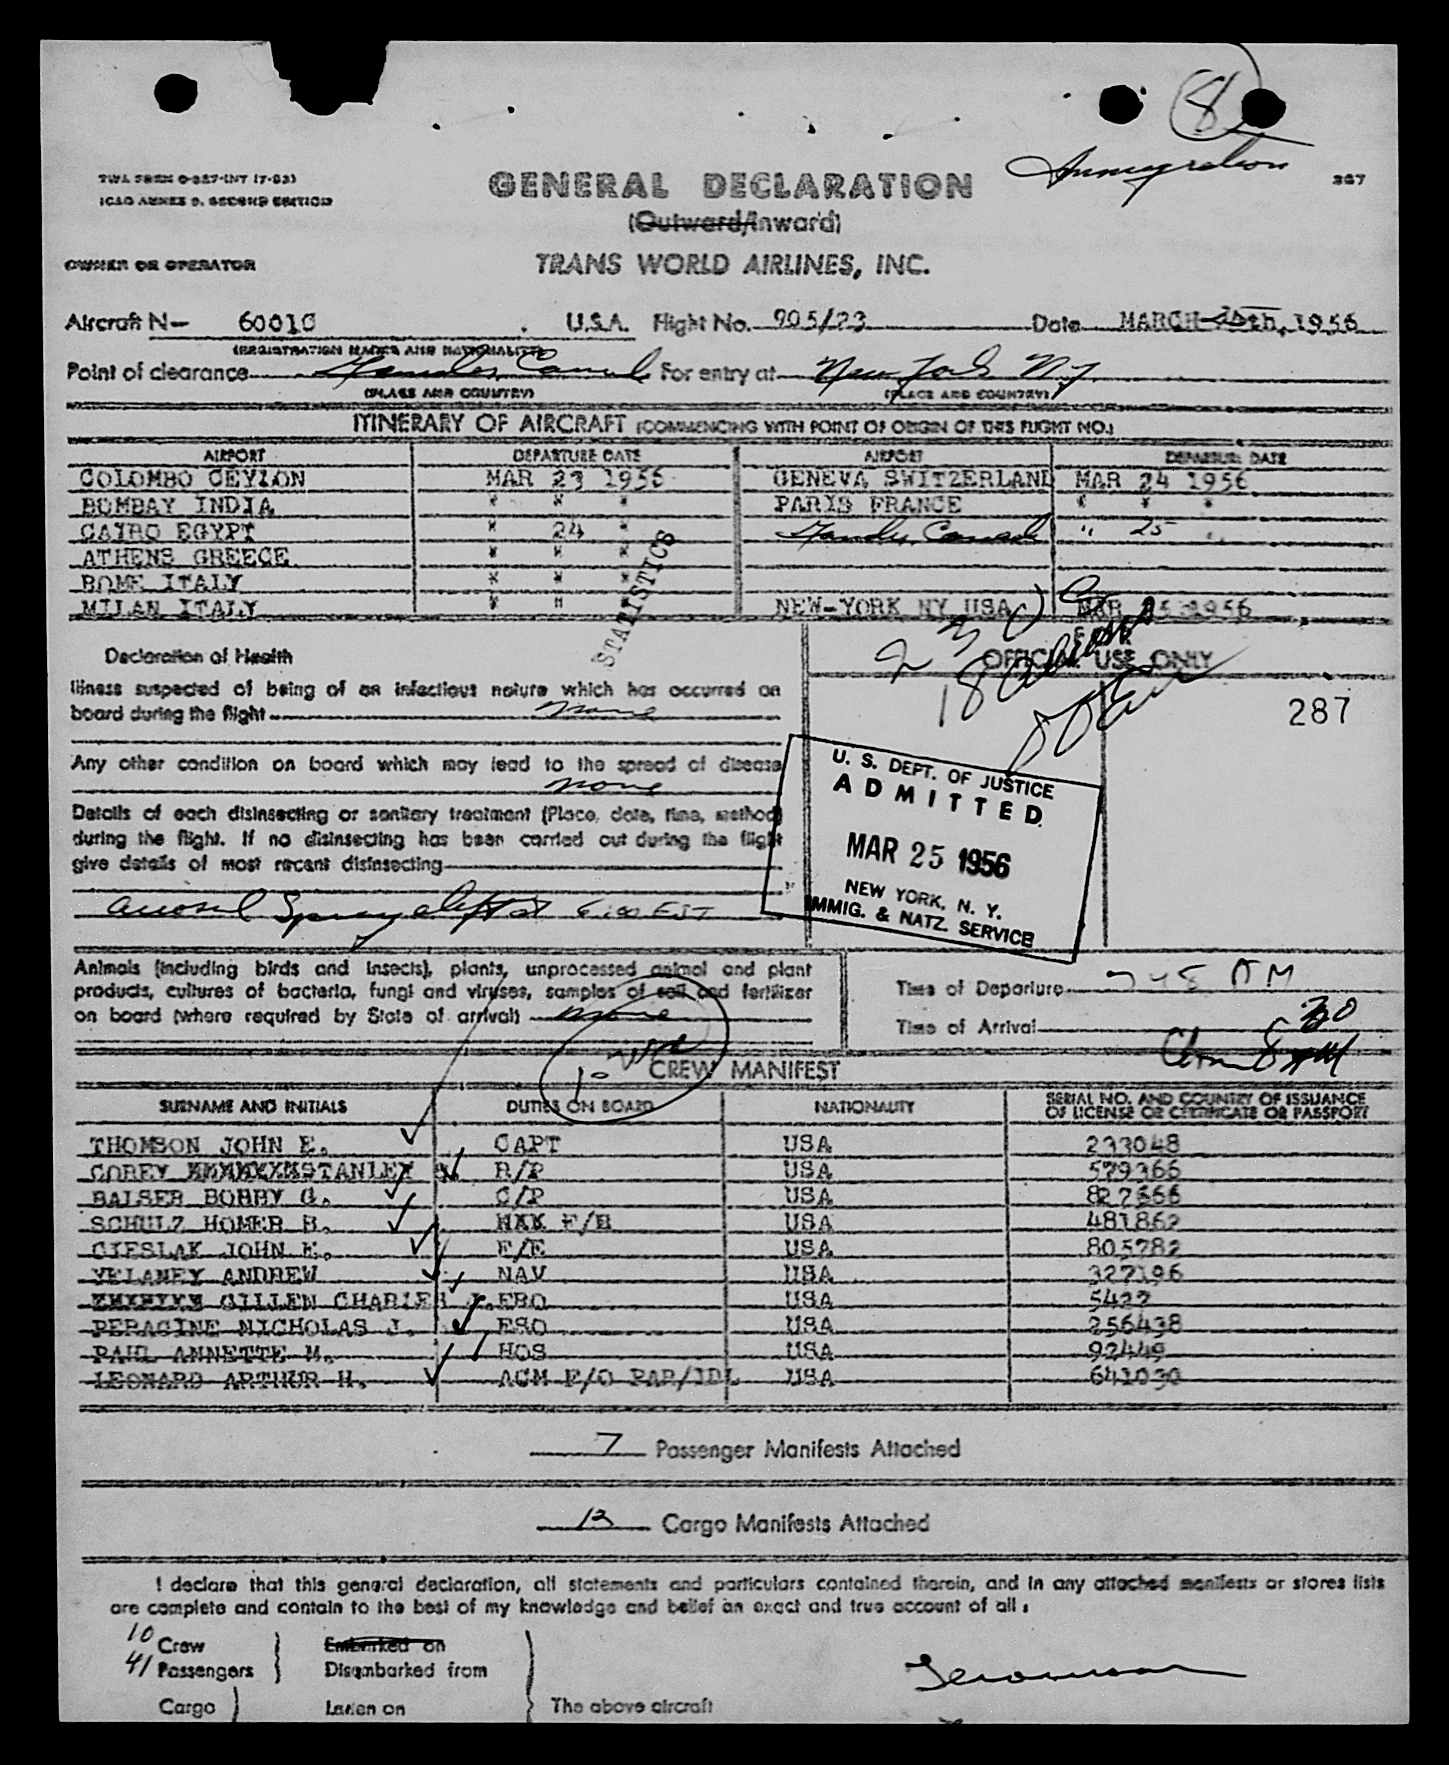 8
Immigration
TWA FORM O-327-INT (7-53)
327
ICAO ANNEX 9, SECOND EDITION
GENERAL DECLARATION
(Outward/Inward)
OWNER OR OPERATOR
TRANS WORLD AIRLINES, INC.
Aircraft N- 6001C U.S.A. Flight No. 905/23 Date MARCH 25th, 1956
(REGISTRATION MARKS AND NATIONALITY)
Point of clearance Gander, Canada For entry at New York N.Y.
(PLACE AND COUNTRY) (PLACE AND COUNTRY)
ITINERARY OF AIRCRAFT (COMMENCING WITH POINT OF ORIGIN OF THIS FLIGHT NO.)
AIRPORT DEPARTURE DATE AIRPORT DEPARTURE DATE
COLOMBO CEYLON MAR 23 1956 GENEVA SWITZERLAND MAR 24 1956
BOMBAY INDIA " " " PARIS FRANCE " " "
CAIRO EGYPT " 24 " Gander, Canada " 25 "
ATHENS GREECE " " "
ROME ITALY " " "
MILAN ITALY " " " NEW-YORK NY USA MAR 25 1956
STATISTICS
Declaration of Health
OFFICIAL USE ONLY
Illness suspected of being of an infectious nature which has occurred on
board during the flight none
287
Any other condition on board which may lead to the spread of disease
none
U. S. DEPT. OF JUSTICE
ADMITTED
MAR 25 1956
NEW YORK, N. Y.
IMMIG. & NATZ. SERVICE
Details of each disinsecting or sanitary treatment (Place, date, time, method)
during the flight. If no disinsecting has been carried out during the flight
give details of most recent disinsecting
Aerosol Spray 6:00 EST
Animals (including birds and insects), plants, unprocessed animal and plant
products, cultures of bacteria, fungi and viruses, samples of soil and fertilizer
on board (where required by State of arrival) none
Time of Departure 748 AM
Time of Arrival
CREW MANIFEST
SURNAME AND INITIALS DUTIES ON BOARD NATIONALITY SERIAL NO. AND COUNTRY OF ISSUANCE OF LICENSE OR CERTIFICATE OR PASSPORT
THOMSON JOHN E. CAPT USA 233048
COREY STANLEY R/P USA 579366
BALSER BOBBY G. C/P USA 827666
SCHULZ HOMER B. F/E USA 481862
CIESLAK JOHN E. F/E USA 805782
VELANEY ANDREW NAV USA 327196
GILLEN CHARLES FRO USA 5422
PERAGINE NICHOLAS J. FSO USA 256438
PAHL ANNETTE M. HOS USA 92449
LEONARD ARTHUR H. ACM F/O PAR/IDL USA 641030
7 Passenger Manifests Attached
13 Cargo Manifests Attached
I declare that this general declaration, all statements and particulars contained therein, and in any attached manifests or stores lists
are complete and contain to the best of my knowledge and belief an exact and true account of all:
10 Crew } Embarked on
41 Passengers } Disembarked from
Cargo } Laden on } The above aircraft